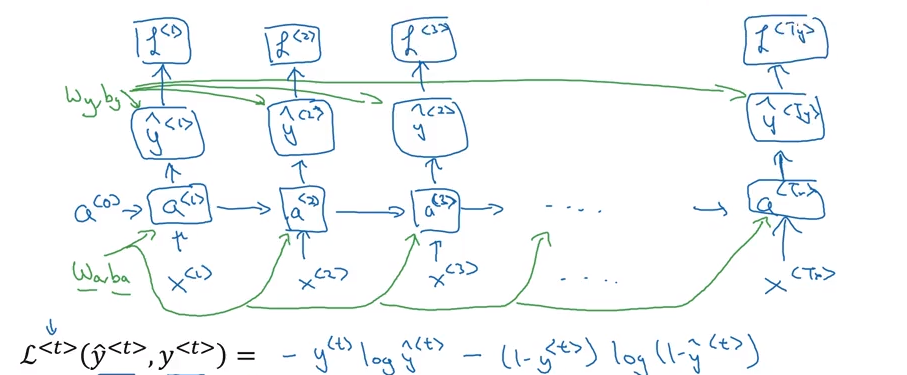 ℒ<1> ℒ<2> ℒ<3> ℒ<Ty>
Wy,by
ŷ<1> ŷ<2> ŷ<3> ŷ<Ty>
a<0> a<1> a<2> a<3> .... a<Tx>
Wa,ba
x<1> x<2> x<3> .... x<Tx>
ℒ<t>(ŷ<t>, y<t>) = - y<t> log ŷ<t> - (1-y<t>) log (1-ŷ<t>)